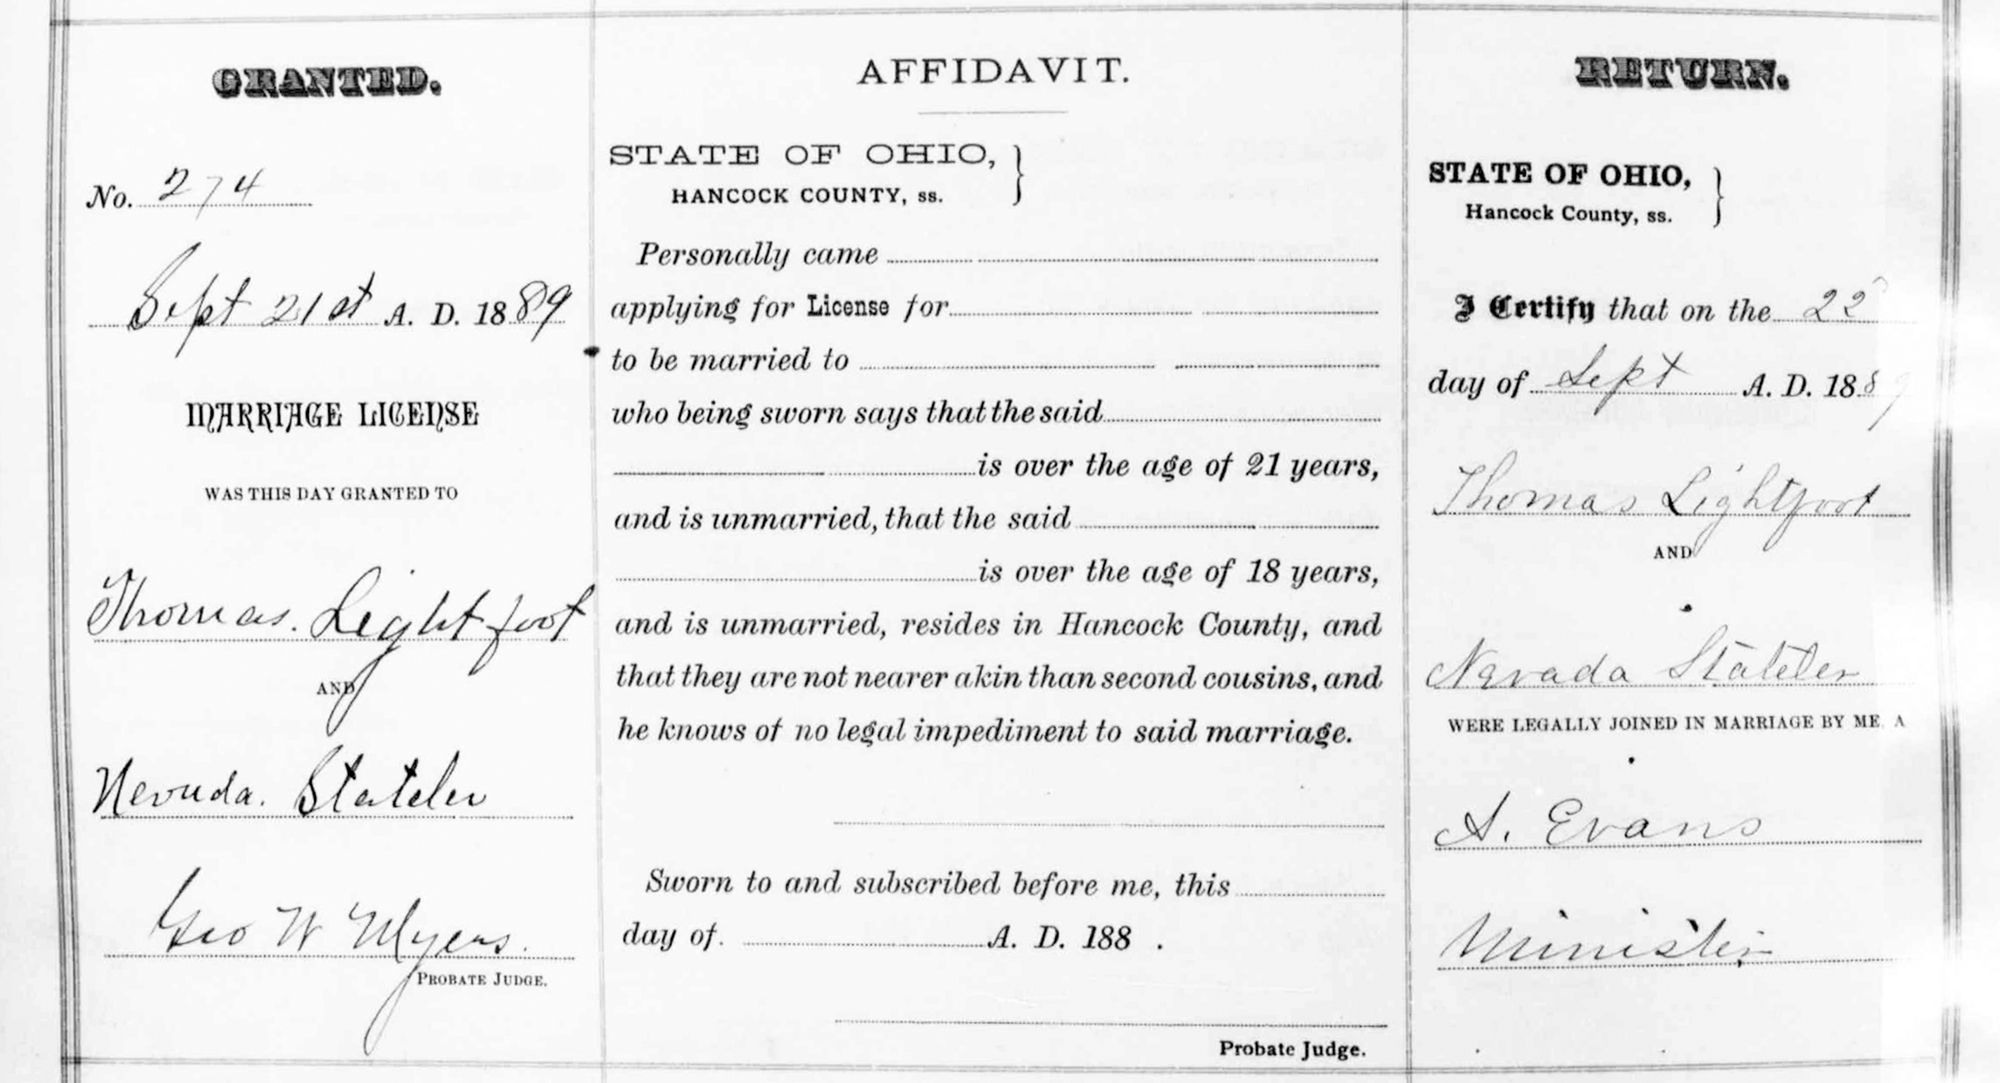 GRANTED.
No. 274
Sept 21st A. D. 1889
MARRIAGE LICENSE
WAS THIS DAY GRANTED TO
Thomas. Lightfoot
AND
Nevada. Stateler
Geo W Myers.
PROBATE JUDGE.
AFFIDAVIT.
STATE OF OHIO, }
HANCOCK COUNTY, ss.
Personally came
applying for License for
to be married to
who being sworn says that the said
is over the age of 21 years,
and is unmarried, that the said
is over the age of 18 years,
and is unmarried, resides in Hancock County, and
that they are not nearer akin than second cousins, and
he knows of no legal impediment to said marriage.
Sworn to and subscribed before me, this
day of. A. D. 188 .
Probate Judge.
RETURN.
STATE OF OHIO, }
Hancock County, ss.
I Certify that on the 22
day of Sept A. D. 1889
Thomas Lightfoot
AND
Nevada Stateler
WERE LEGALLY JOINED IN MARRIAGE BY ME A
A. Evans
Minister